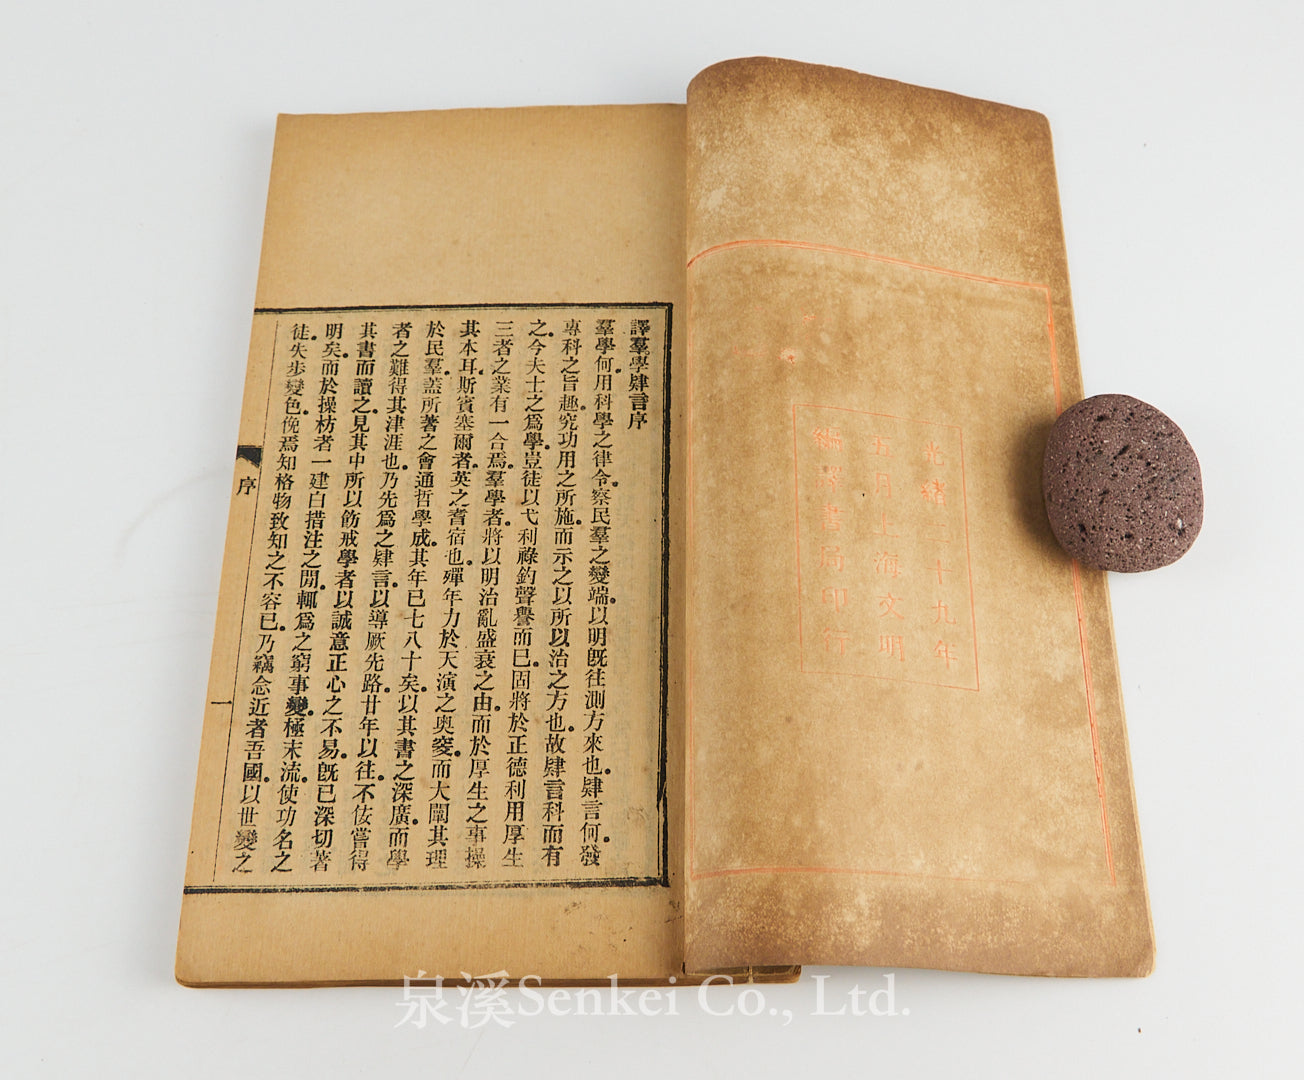 光緒二十九年
五月上海文明
編譯書局印行
譯羣學肄言序
羣學何。用科學之律令。察民羣之變端。以明旣往測方來也。肄言何。發
專科之旨趣。究功用之所施。而示之以所以治之方也。故肄言科而有
之。今夫士之爲學。豈徒以弋利祿釣聲譽而已。固將於正德利用厚生
三者之業有一合焉。羣學者。將以明治亂盛衰之由。而於厚生之事操
其本耳。斯賓塞爾者。英之耆宿也。殫年力於天演之奧窔。而大闡其理
於民羣。蓋所著之會通哲學成。其年已七八十矣。以其書之深廣。而學
者之難得其津涯也。乃先爲之肄言。以導厥先路。廿年以往。不佞嘗得
其書而讀之。見其中所以飭戒學者以誠意正心之不易。旣已深切著
明矣。而於操枋者一建白措注之間。輒爲之窮事變。極末流。使功名之
徒。失步變色。俛焉知格物致知之不容已。乃竊念近者吾國。以世變之
序
一
泉溪Senkei Co., Ltd.